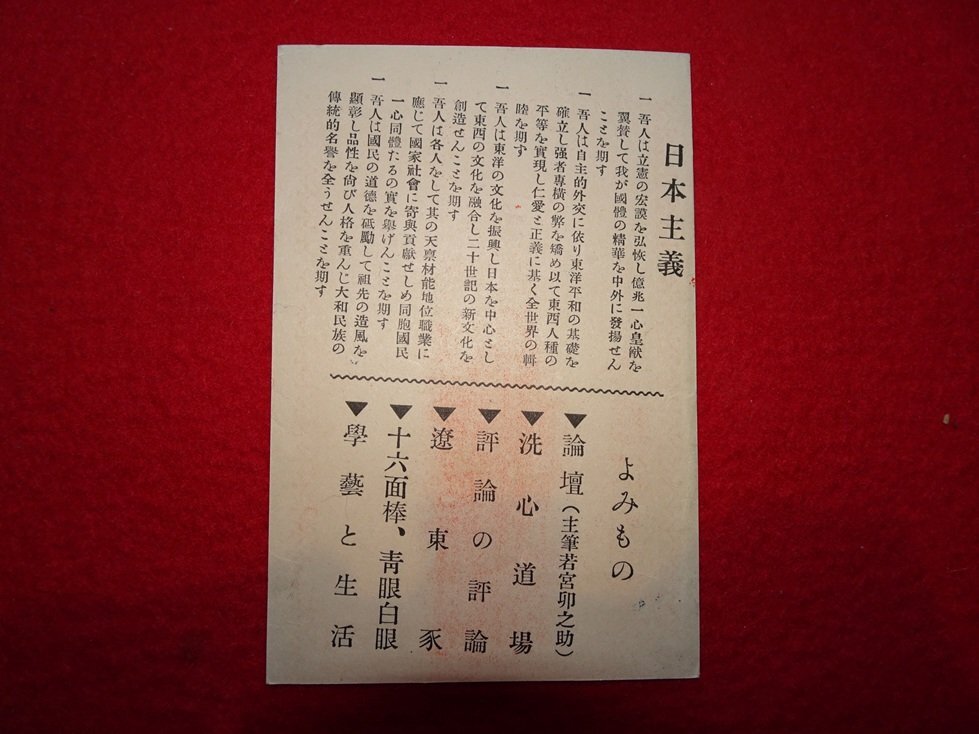 日本主義
一 吾人は立憲の宏謨を弘恢し億兆一心皇猷を
翼賛して我が國體の精華を中外に發揚せん
ことを期す
一 吾人は自主的外交に依り東洋平和の基礎を
確立し强者專橫の弊を矯め以て東西人種の
平等を實現し仁愛と正義に基く全世界の輯
睦を期す
一 吾人は東洋の文化を振興し日本を中心とし
て東西の文化を融合し二十世記の新文化を
創造せんことを期す
一 吾人は各人をして其の天禀材能地位職業に
應じて國家社會に寄與貢獻せしめ同胞國民
一心同體たるの實を擧げんことを期す
一 吾人は國民の道德を砥勵して祖先の造風を
顯彰し品性を尙び人格を重んじ大和民族の
傳統的名譽を全うせんことを期す
よみもの
▼論壇(主筆若宮卯之助)
▼洗心道場
▼評論の評論
▼遼東豕
▼十六面棒、靑眼白眼
▼學藝と生活